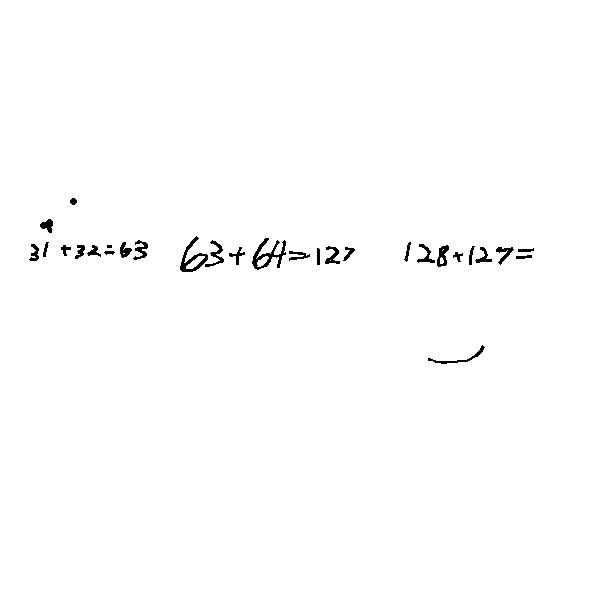 31+32=63 63+64=127 128+127=